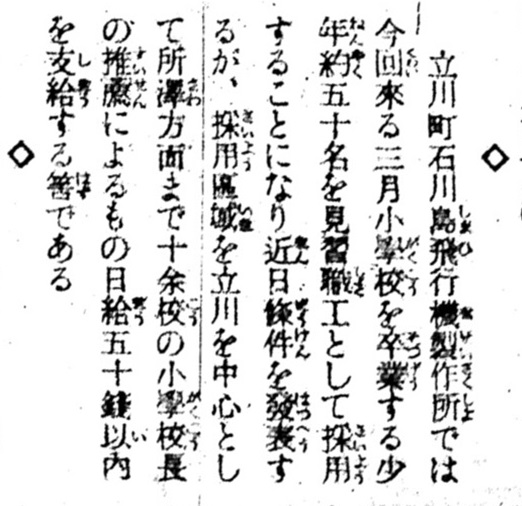 立川町石川島飛行機製作所では
今回來る三月小學校を卒業する少
年約五十名を見習職工として採用
することになり近日條件を發表す
るが、採用區域を立川を中心とし
て所澤方面まで十余校の小學校長
の推薦によるもの日給五十錢以内
を支給する筈である